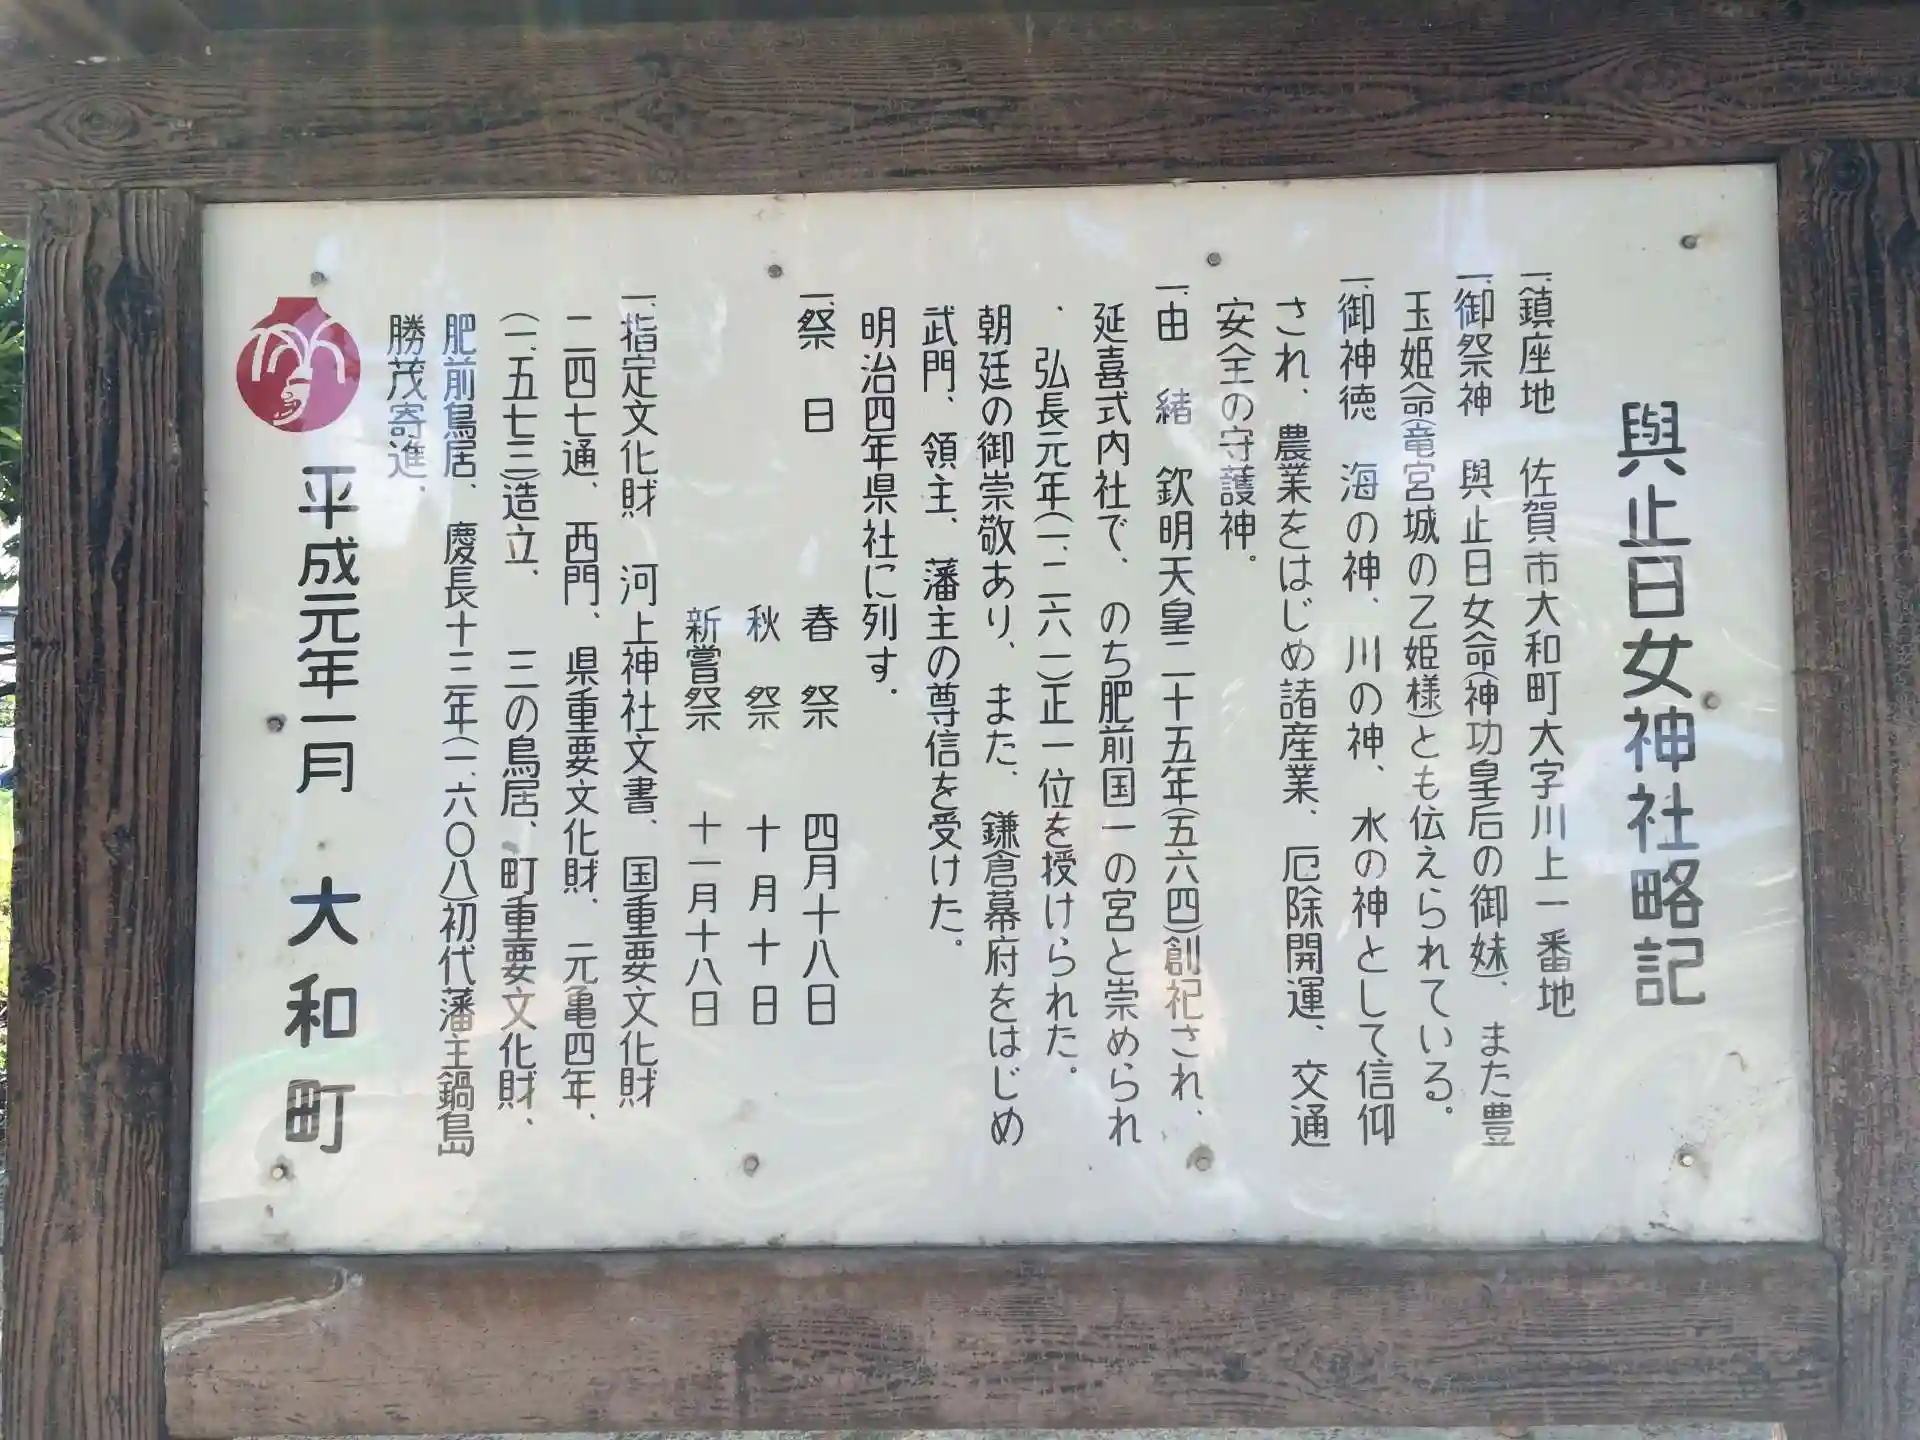 與止日女神社略記
一、鎮座地　佐賀市大和町大字川上一番地
一、御祭神　與止日女命(神功皇后の御妹)、また豊
玉姫命(竜宮城の乙姫様)とも伝えられている。
一、御神徳　海の神、川の神、水の神として信仰
され、農業をはじめ諸産業、厄除開運、交通
安全の守護神。
一、由　緒　欽明天皇二十五年(五六四)創祀され、
延喜式内社で、のち肥前国一の宮と崇められ
、弘長元年(一、二六一)正一位を授けられた。
朝廷の御崇敬あり、また、鎌倉幕府をはじめ
武門、領主、藩主の尊信を受けた。
明治四年県社に列す.
一、祭　日　　　　春　祭　　四月十八日
秋　祭　　十月十日
新嘗祭　　十一月十八日
一、指定文化財　河上神社文書、国重要文化財
二四七通、西門、県重要文化財、元亀四年、
(一、五七三)造立、　三の鳥居、町重要文化財、
肥前鳥居、慶長十三年(一、六〇八)初代藩主鍋島
勝茂寄進、
平成元年一月　大和町